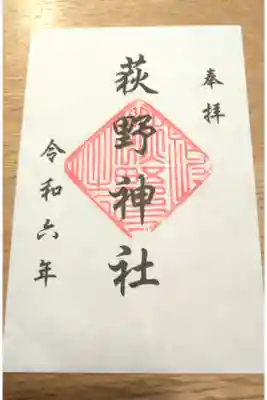 奉拝
荻野神社
令和六年